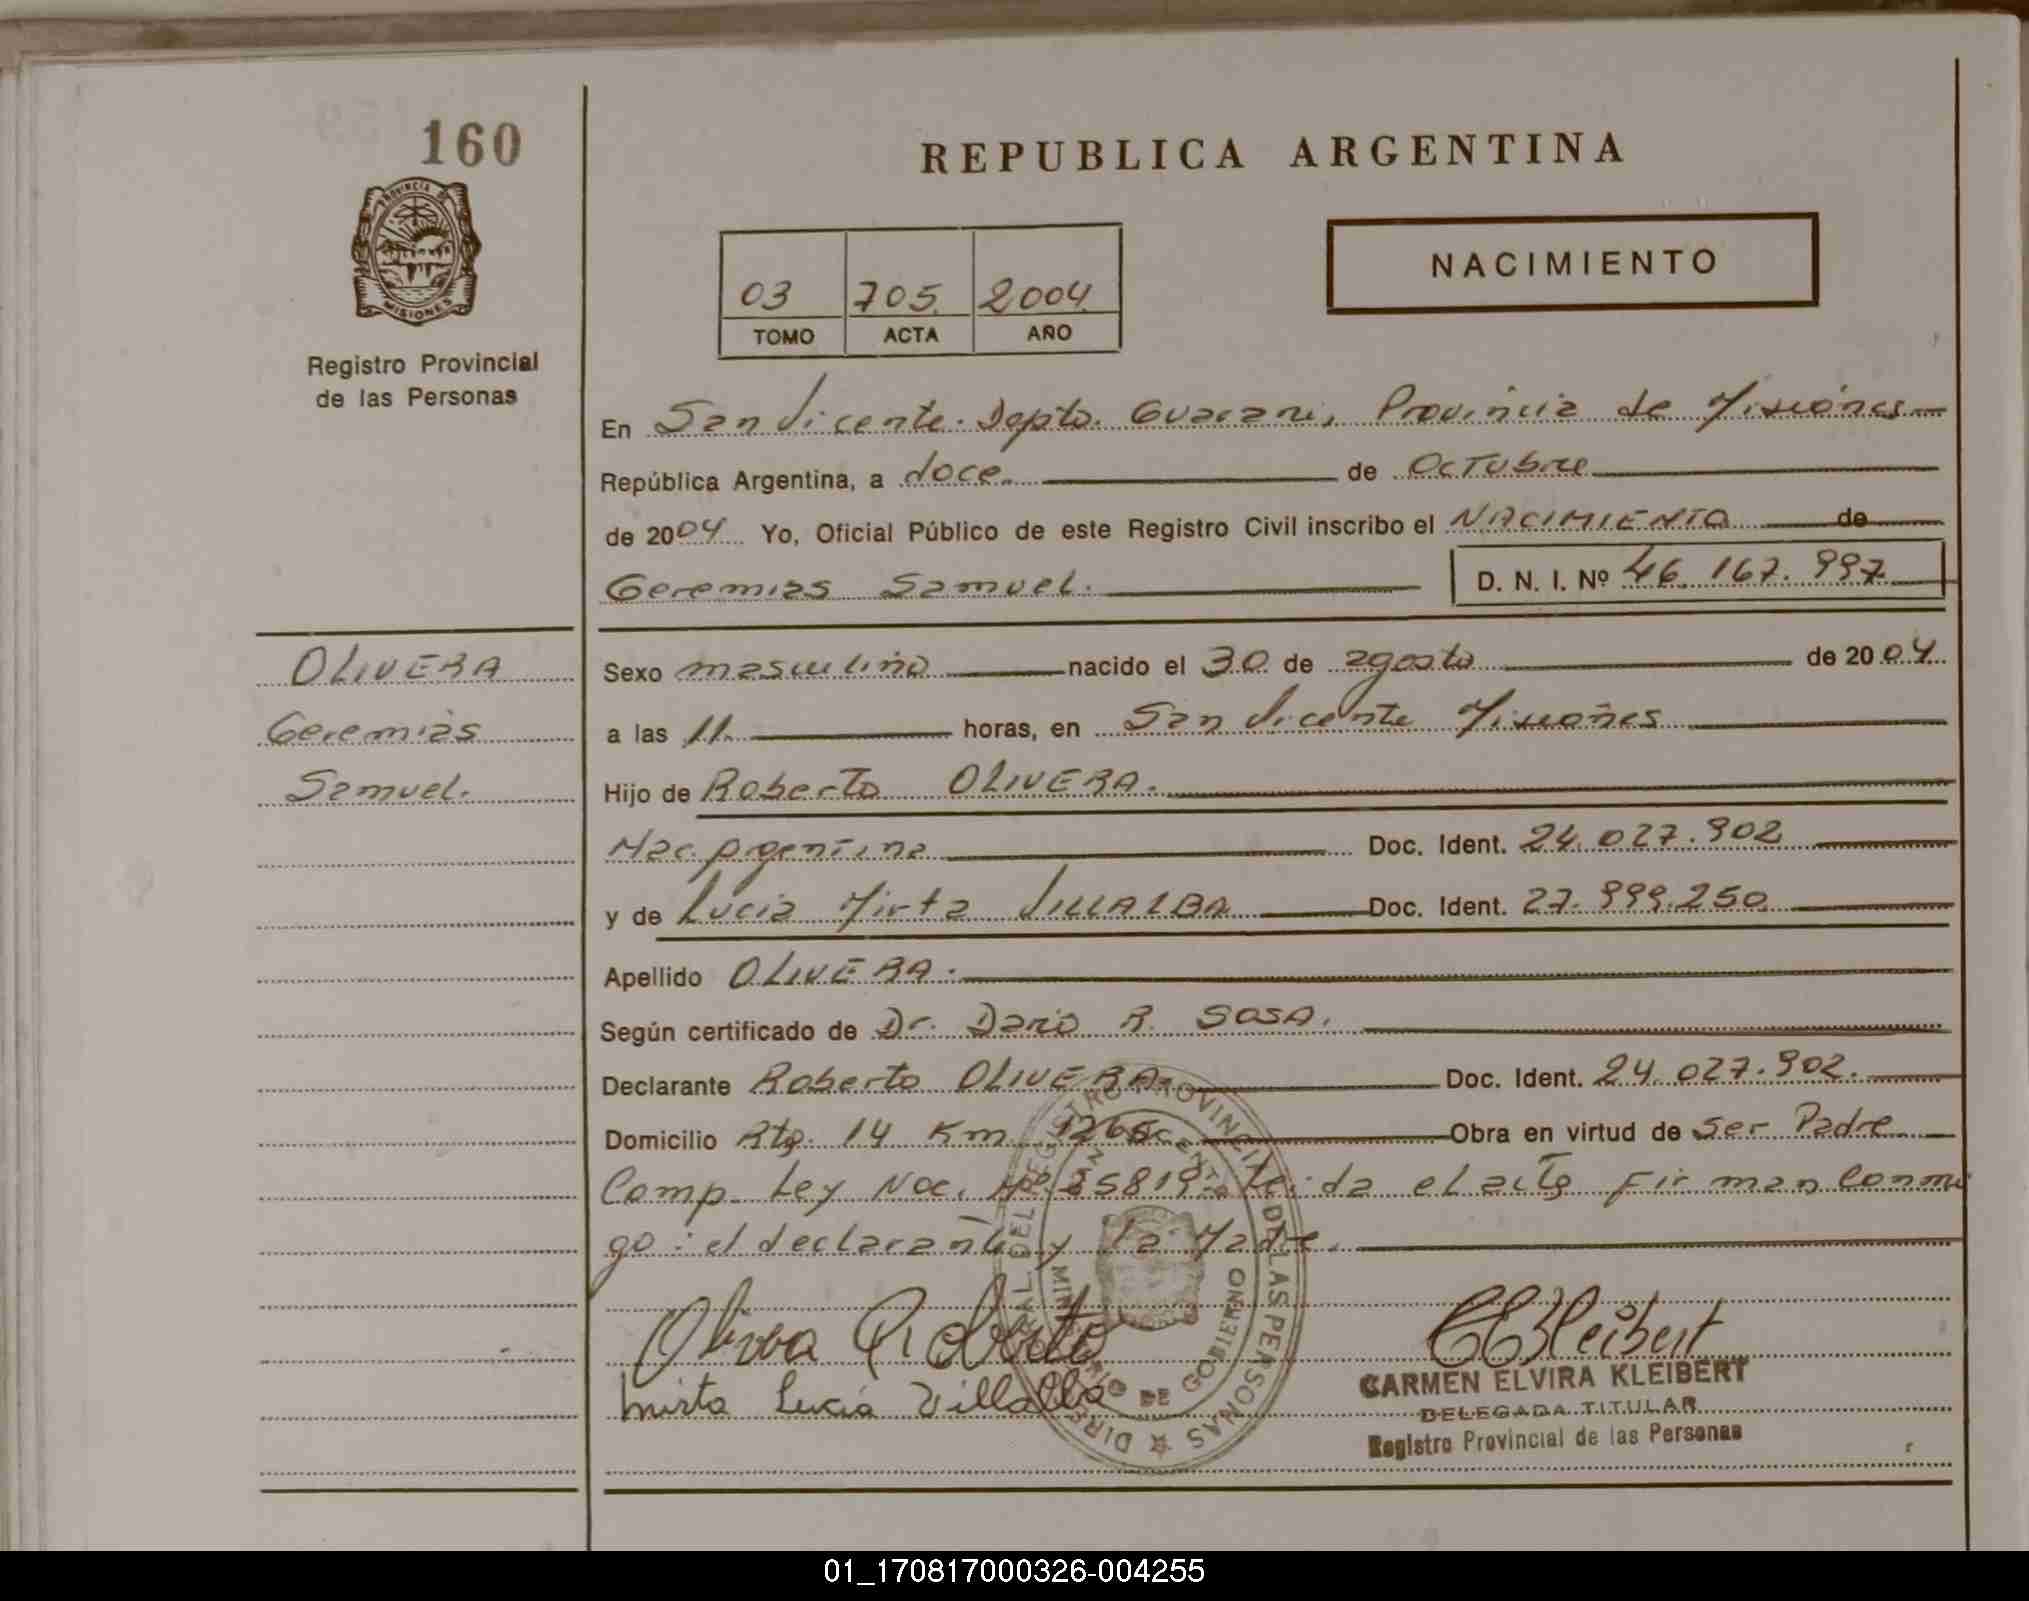 160
PROVINCIA DE
MISIONES
Registro Provincial
de las Personas
REPUBLICA ARGENTINA
NACIMIENTO
03 705 2004
TOMO ACTA AÑO
En San Vicente. Depto. Guarani, Provincia de Misiones
República Argentina, a doce de Octubre
de 2004 Yo, Oficial Público de este Registro Civil inscribo el NACIMIENTO de
Geremias Samuel. D. N. I. Nº 46.167.997
OLIVERA
Geremias
Samuel.
Sexo masculino nacido el 30 de agosto de 2004
a las 11 horas, en San Vicente Misiones
Hijo de Roberto OLIVERA.
Nac. Argentina Doc. Ident. 24.027.902
y de Lucia Mirta VILLALBA Doc. Ident. 27.999.250
Apellido OLIVERA.
Según certificado de Dr. Dario R. SOSA.
Declarante Roberto OLIVERA Doc. Ident. 24.027.902.
Domicilio Rta. 14 Km 1266 Obra en virtud de Ser Padre
Comp. Ley Nac. Nº 25819. Leida el acta Firman conmi
go: el declarante y la Madre.
Olivera Roberto
Mirta Lucia Villalba
CEKleibert
CARMEN ELVIRA KLEIBERT
DELEGADA TITULAR
Registro Provincial de las Personas
DEL REGISTRO PROVINCIAL DE LAS PERSONAS
MINISTERIO DE GOBIERNO
01_170817000326-004255